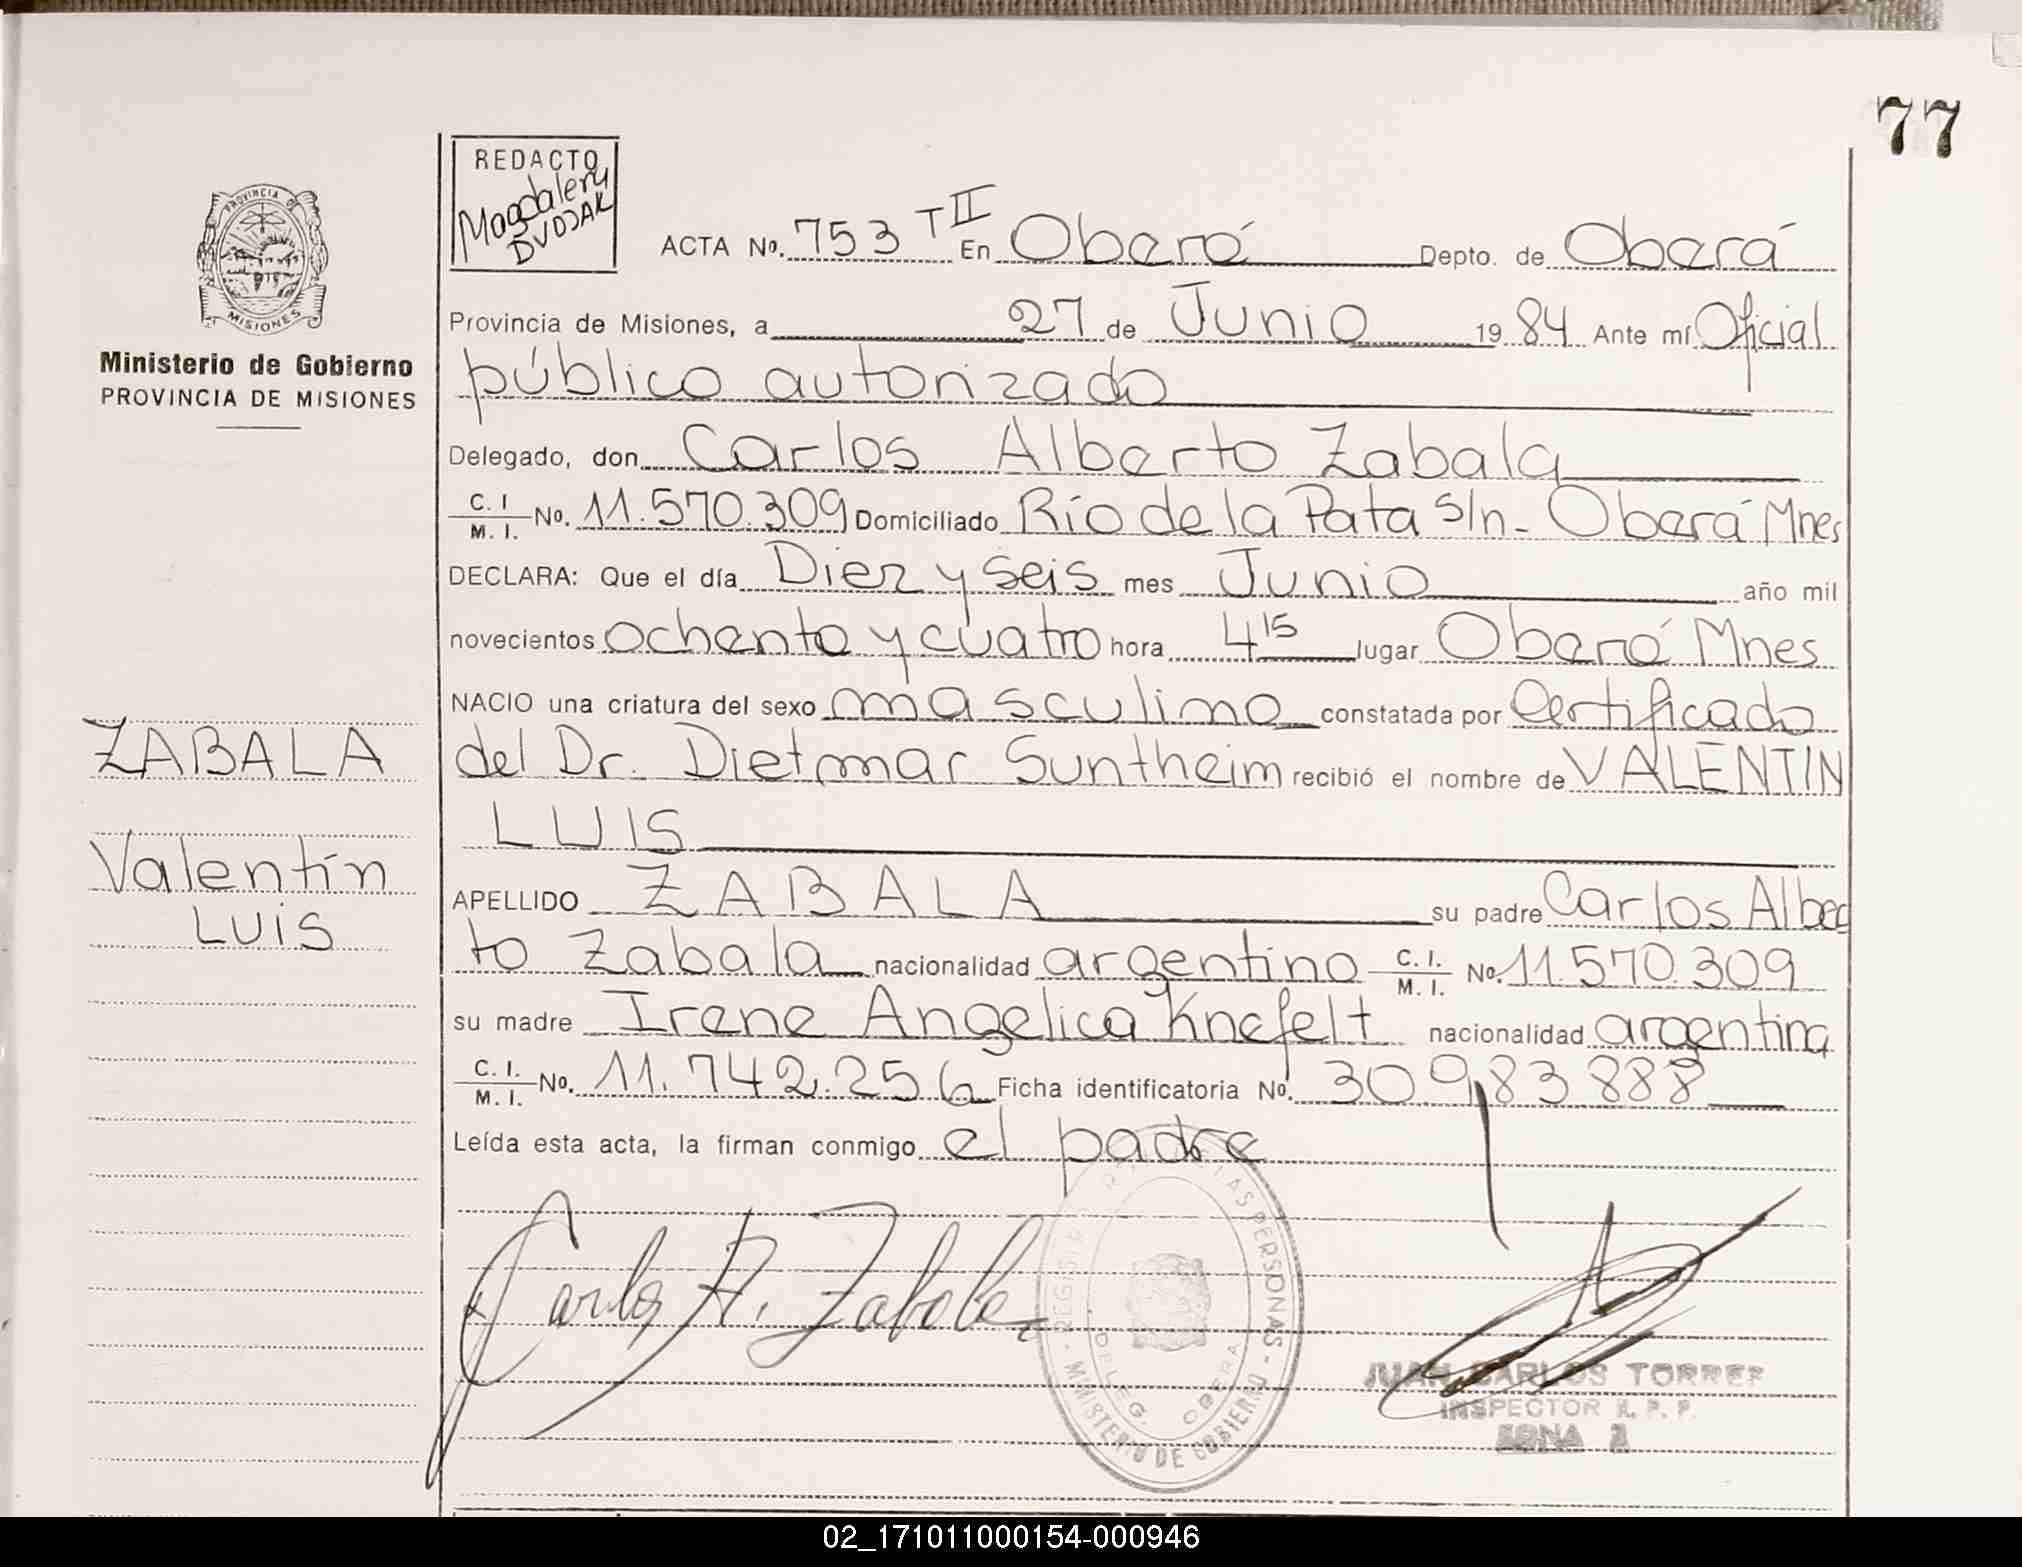 77
REDACTO
Magdalena
DVOJAK
PROVINCIA DE
MISIONES
Ministerio de Gobierno
PROVINCIA DE MISIONES
ACTA No. 753 T II En Oberá Depto. de Oberá
Provincia de Misiones, a 27 de Junio 1984 Ante mí Oficial
público autorizado
Delegado, don Carlos Alberto Zabala
C. I. M. I. No. 11.570.309 Domiciliado Río de la Pata S/n - Oberá Mnes
DECLARA: Que el día Diez y seis mes Junio año mil
novecientos ochenta y cuatro hora 4 15 lugar Oberá Mnes
NACIO una criatura del sexo masculino constatada por Certificado
del Dr. Dietmar Suntheim recibió el nombre de VALENTIN
LUIS
APELLIDO ZABALA su padre Carlos Alber
to Zabala nacionalidad argentino C. I. M. I. No. 11.570.309
su madre Irene Angelica Knefelt nacionalidad argentina
C. I. M. I. No. 11.742.256 Ficha identificatoria No. 30983888
Leída esta acta, la firman conmigo el padre
ZABALA
Valentín
LUIS
Carlos A. Zabala
REGISTRO LAS PERSONAS - MINISTERIO DE GOBIERNO
DELEG. OBERA
JUAN CARLOS TORRES
INSPECTOR R. P. P.
ZONA 2
02_171011000154-000946